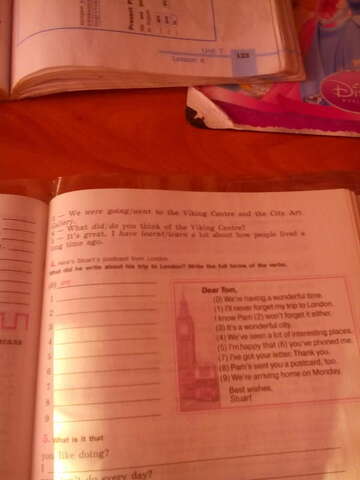 Present P
Unit 7
Lesson 6
123
Di
3 — We were going/went to the Viking Centre and the City Art
Gallery.
4 — What did/do you think of the Viking Centre?
5 — It's great. I have learnt/learn a lot about how people lived a
long time ago.
4. Here's Stuart's postcard from London.
What did he write about his trip to London? Write the full forms of the verbs.
1
2
3
4
5
6
7
8
9
Dear Tom,
(0) We're having a wonderful time.
(1) I'll never forget my trip to London.
I know Pam (2) won't forget it either.
(3) It's a wonderful city.
(4) We've seen a lot of interesting places.
(5) I'm happy that (6) you've phoned me.
(7) I've got your letter. Thank you.
(8) Pam's sent you a postcard, too.
(9) We're arriving home on Monday.
Best wishes,
Stuart
5. What is it that
you like doing?
do every day?